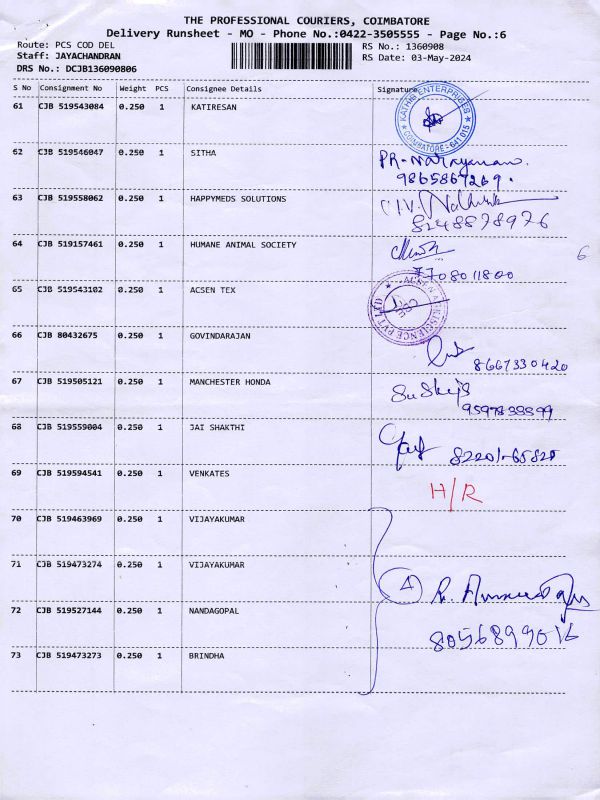 THE PROFESSIONAL COURIERS, COIMBATORE
Delivery Runsheet - MO - Phone No.:0422-3505555 - Page No.:6
Route: PCS COD DEL RS No.: 1360908
Staff: JAYACHANDRAN RS Date: 03-May-2024
DRS No.: DCJB136090806
S No Consignment No Weight PCS Consignee Details Signature
61 CJB 519543084 0.250 1 KATIRESAN
ENTERPRISES
COIMBATORE - 641 015
62 CJB 519546047 0.250 1 SITHA PR. Narayanan
9865869269.
63 CJB 519558062 0.250 1 HAPPYMEDS SOLUTIONS
8248878976
64 CJB 519157461 0.250 1 HUMANE ANIMAL SOCIETY
6
7708011800
65 CJB 519543102 0.250 1 ACSEN TEX
PVT LTD
66 CJB 80432675 0.250 1 GOVINDARAJAN
8667330420
67 CJB 519505121 0.250 1 MANCHESTER HONDA
68 CJB 519559004 0.250 1 JAI SHAKTHI
69 CJB 519594541 0.250 1 VENKATES H/R
70 CJB 519463969 0.250 1 VIJAYAKUMAR
71 CJB 519473274 0.250 1 VIJAYAKUMAR
4
72 CJB 519527144 0.250 1 NANDAGOPAL
8056899016
73 CJB 519473273 0.250 1 BRINDHA